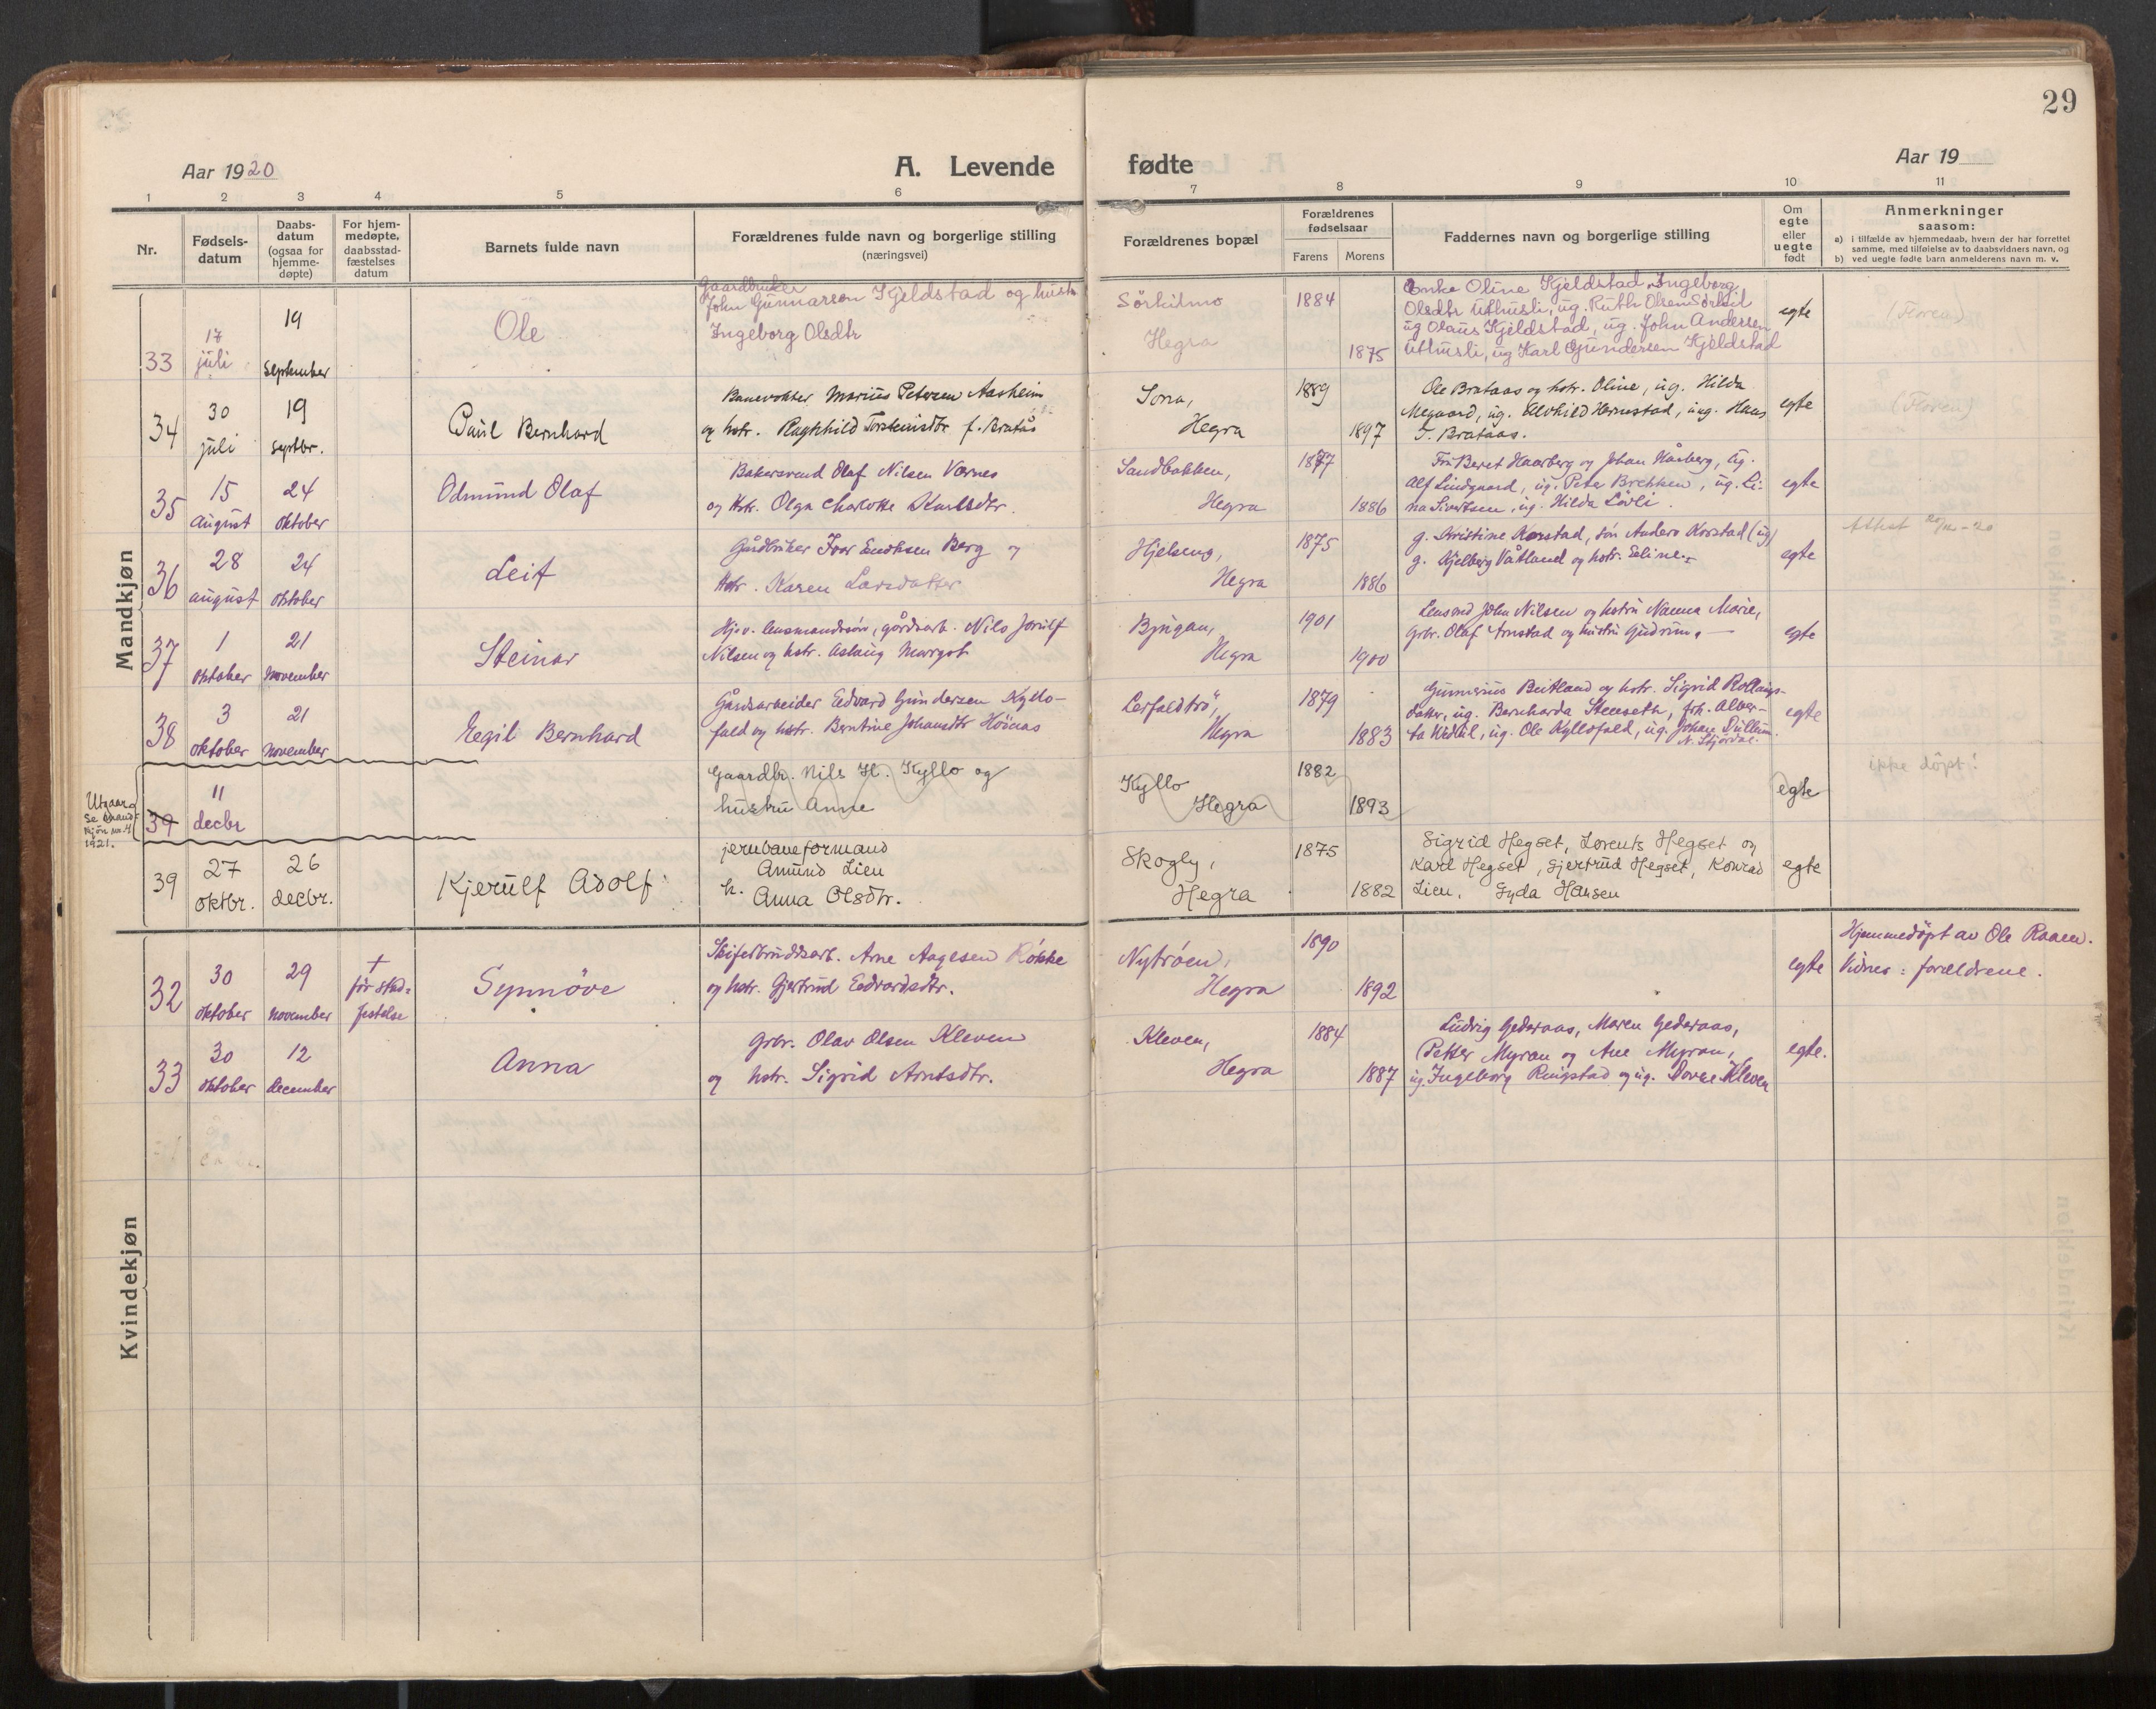 29
Aar 1920
A. Levende
fødte
Aar 19
1 2 3 4 5 6 7 8 9 10 11
Nr.
Fødsels-
datum
Daabs-
datum
(ogsaa for
hjemme-
døpte)
For hjem-
medøpte,
daabsstad-
fæstelses
datum
Barnets fulde navn
Forældrenes fulde navn og borgerlige stilling
(næringsvei)
Forældrenes bopæl
Forældrenes
fødselsaar
Farens Morens
Faddernes navn og borgerlige stilling
Om
egte
eller
uegte
født
Anmerkninger
saasom:
a) i tilfælde av hjemmedaab, hvem der har forrettet
samme, med tilføielse av to daabsvidners navn, og
b) ved uegte fødte barn anmelderens navn m. v.
Mandkjøn
33
17
juli
19
september
Ole
Gaardbruker
John Gunnarsen Kjeldstad og hustr
Ingeborg Olsdtr
Sörkilmo
Hegra
1884
1875
Enke Oline Kjeldstad, Ingeborg
Olsdtr Uthusli, ug. Ruth Olsen Sörkil
ug Olaus Kjeldstad, ug. John Andersen
Uthusli, ug Karl Gundersen Kjeldstad
egte
(Floren)
34
30
juli
19
septbr.
Paul Bernhard
Banevokter Marius Petersen Aasheim
og hstr. Ragnhild Torsteinsdtr f. Bratås
Sona,
Hegra
1889
1897
Ole Brataas og hstr. Oline, ug. Hilda
Megaard, ug. Alvhild Hernestad, ug. Hans
T. Brataas.
egte
(Floren)
35
15
august
24
oktober
Odmund Olaf
Bakersvend Olaf Nilsen Værnes
og Hstr. Olga Charlotte Karlsdtr.
Sandbakken,
Hegra
1877
1886
Fru Beret Haarberg og Johan Hårberg, ug.
Alf Lindgaard, ug. Peter Brekken, ug. Li-
na Sivertsen, ug. Hilda Lövli.
egte
36
28
august
24
oktober
Leif
Gårdbruker Ivar Eriksen Berg og
Hstr. Karen Larsdatter
Hjelseng,
Hegra
1875
1886
g. Kristine Korstad, søn Anders Korstad (ug)
g. Kjelberg Våtland og hstr. Eline.
egte
Athst 20/12-20
37
1
oktober
21
november
Steinar
Hj.v. lensmandssön, gårdsarb. Nils Jorulf
Nilsen og hstr. Aslaug Margot
Bjugan,
Hegra
1901
1900
Lensmd John Nilsen og hstru Nanna Marie,
Grbr. Olaf Arnstad og hustru Gudrun.
egte
38
3
oktober
21
november
Eegil Bernhard
Gårdsarbeider Edvard Gundersen Kyllo-
fald og hstr. Berntine Johansdtr Höinas
Lerfaldtrö,
Hegra
1879
1883
Gunnerius Beitland og hstr. Sigrid Rollaugs-
datter, ug. Bernharda Stenseth, frk. Alber-
ta Wedul, ug. Ole Kyllofald, ug. Johan Dullum
N. Stjørdal.
egte
Utgaar,
se Mand-
kjøn nr. 4
1921.
39
11
decbr
Gaardbr. Nils H. Kyllo og
hustru Anne
Kyllo
Hegra
1882
1893
egte
ikke döpt!
39
27
oktbr.
26
decbr.
Kjerulf Adolf
jernbaneformand
Amund Lien
h. Anna Olsdtr.
Skogly,
Hegra
1875
1882
Sigrid Hegset, Lorents Hegset og
Karl Hegset, Gjertrud Hegset, Konrad
Lien, Gyda Hansen
egte
Kvindekjøn
32
30
oktober
29
november
+
för stad-
festelse
Synnöve
Skiferbruddsarb. Arne Aagesen Røkke
og hstr. Gjertrud Edvardsdtr.
Nytröen,
Hegra
1890
1892
egte
Hjemmedöpt av Ole Raaen.
Vidner: forældrene.
33
30
oktober
12
december
Anna
Grbr. Olav Olsen Kleven
og hstr. Sigrid Arntsdtr.
Kleven,
Hegra
1884
1887
Ludvig Gederaas, Maren Gederaas,
Petter Myran og Ane Myran,
ug. Ingeborg Ringstad og ug. Dorue Kleven
egte.